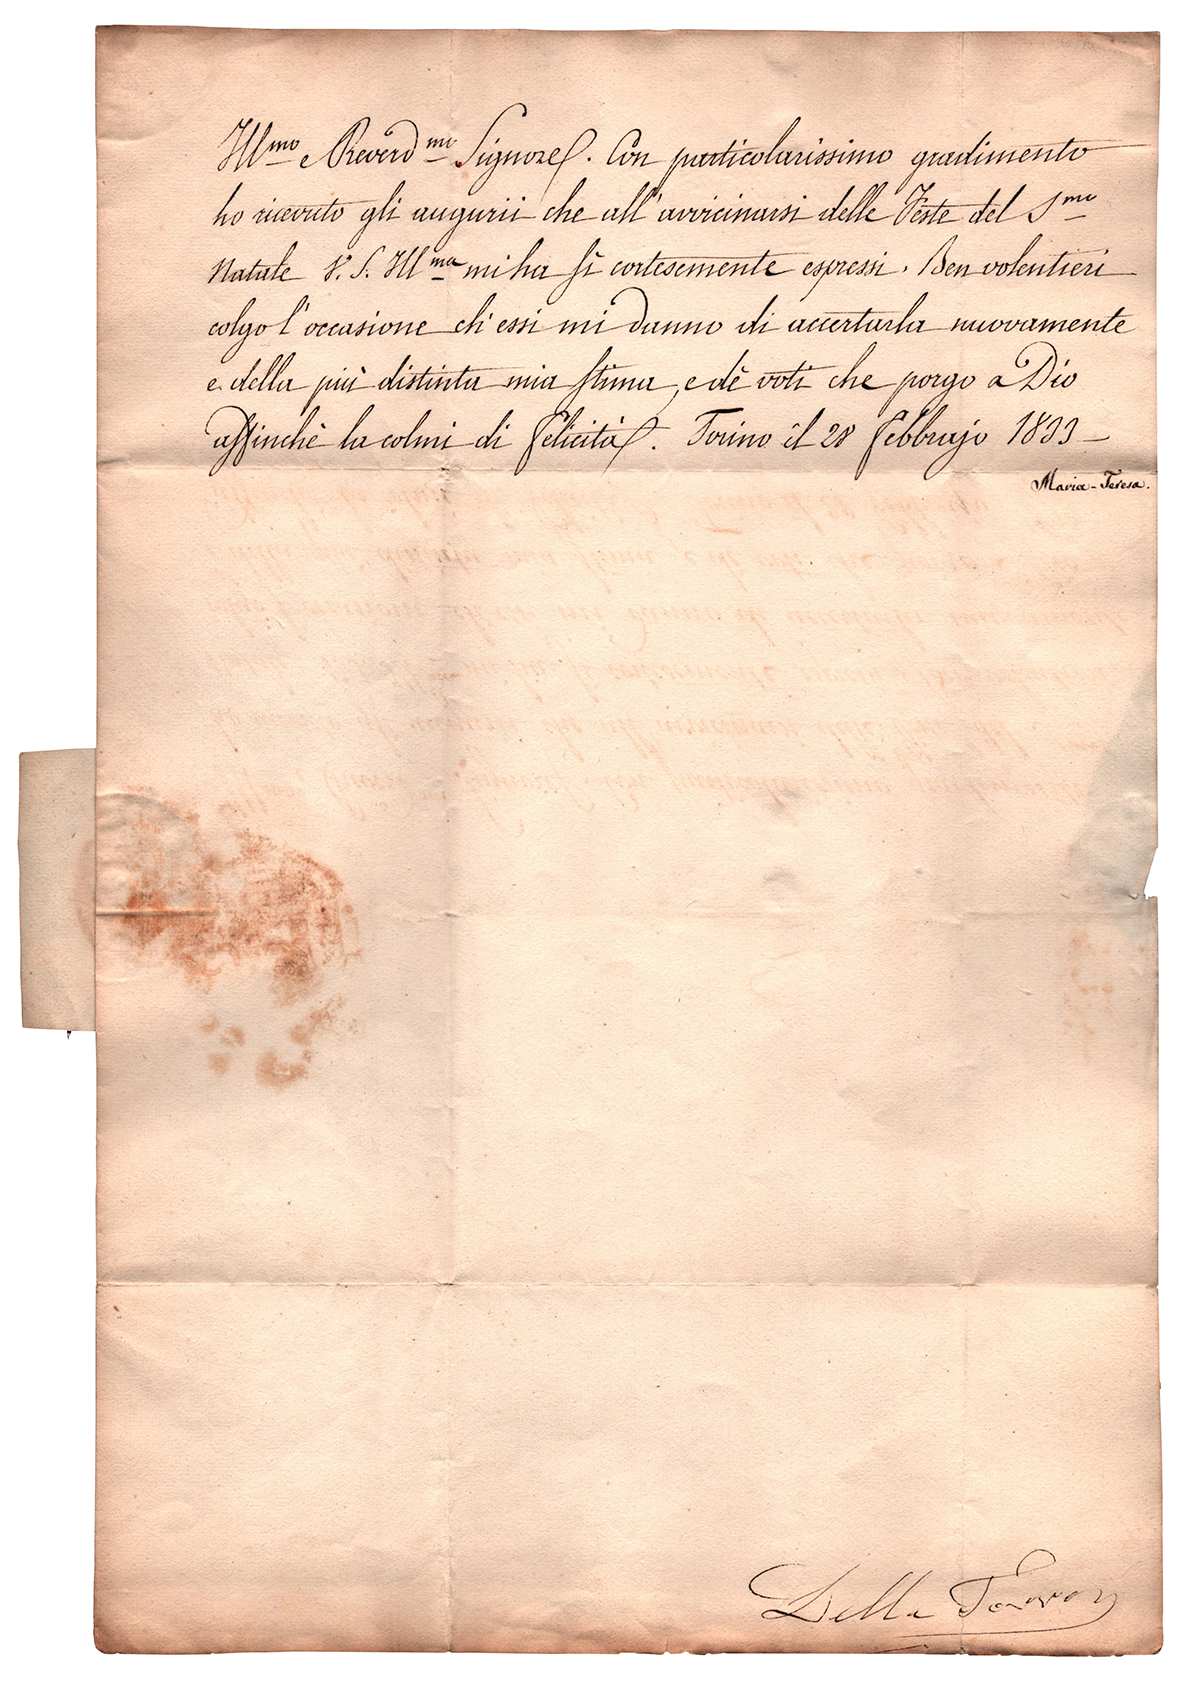 Ill.mo e Reverd.mo Signore. Con particolarissimo gradimento
ho ricevuto gli augurii che all'avvicinarsi delle Feste del S.mo
Natale V. S. Ill.ma mi ha sì cortesemente espressi. Ben volentieri
colgo l'occasione ch'essi mi danno di accertarla nuovamente
e della più distinta mia stima, e dè voti che porgo a Dio
affinchè la colmi di felicità. Torino il 28 febbrajo 1833
Maria-Teresa.
Della